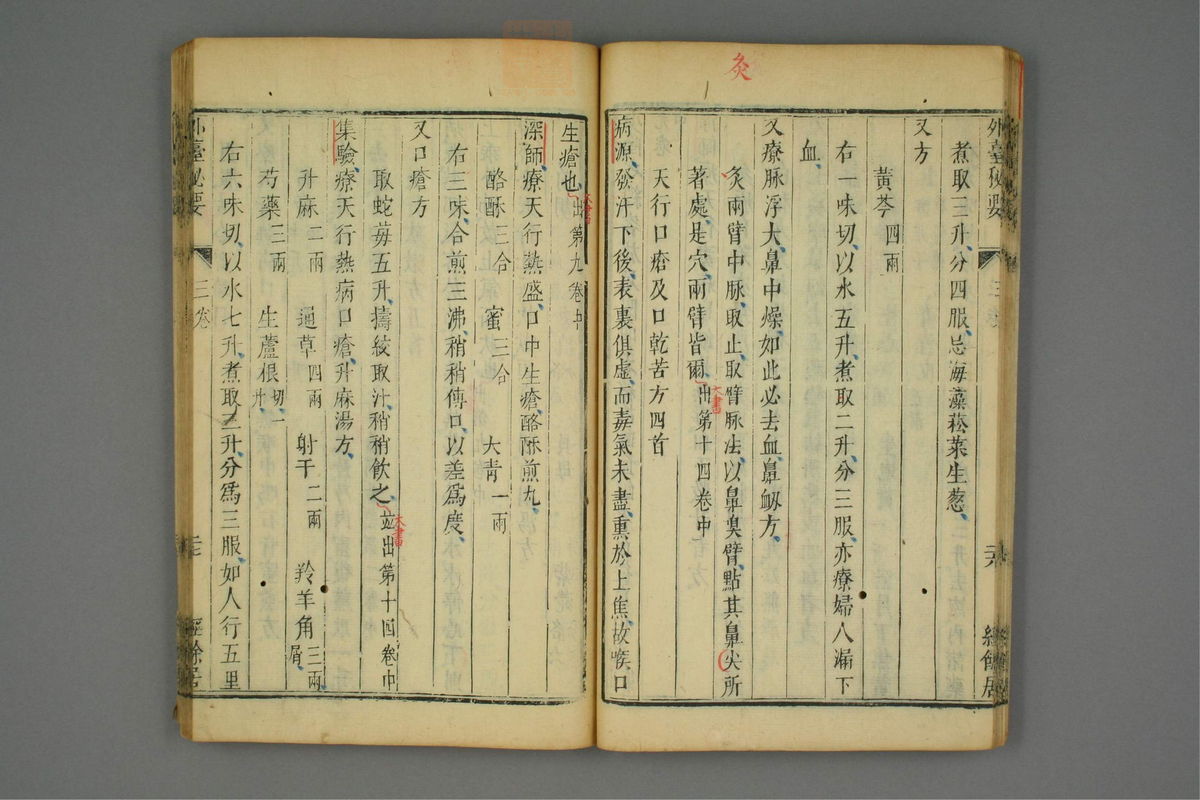 灸
外臺秘要
三卷
二六
經餘居
煮取三升、分四服、忌海藻菘菜生葱、
又方
黃芩四兩
右一味切、以水五升、煮取二升、分三服、亦療婦人漏下
血、
又療脉浮大、鼻中燥、如此必去血、鼻衂方、
灸兩臂中脉、取止、取臂脉法、以鼻臭臂、點其鼻尖所
著處、是穴、兩臂皆爾、出第十四卷中
大書
天行口瘡及口乾苦方四首
病源、發汗下後、表裏俱虛、而毒氣未盡、熏於上焦、故喉口
生瘡也、出第九卷中
大書
深師療天行熱盛、口中生瘡、酪酥煎丸、
酪酥三合 蜜三合 大青一兩
右三味、合煎三沸、稍稍傅口、以差為度、
又口瘡方
取蛇莓五升、擣絞取汁、稍稍飲之、並出第十四卷中
大書
集驗、療天行熱病口瘡、升麻湯方、
升麻二兩 通草四兩 射干二兩 羚羊角三兩、屑
芍藥三兩 生蘆根切、一升、
右六味切、以水七升、煮取三升、分為三服、如人行五里
外臺秘要
三卷
二七
經餘居